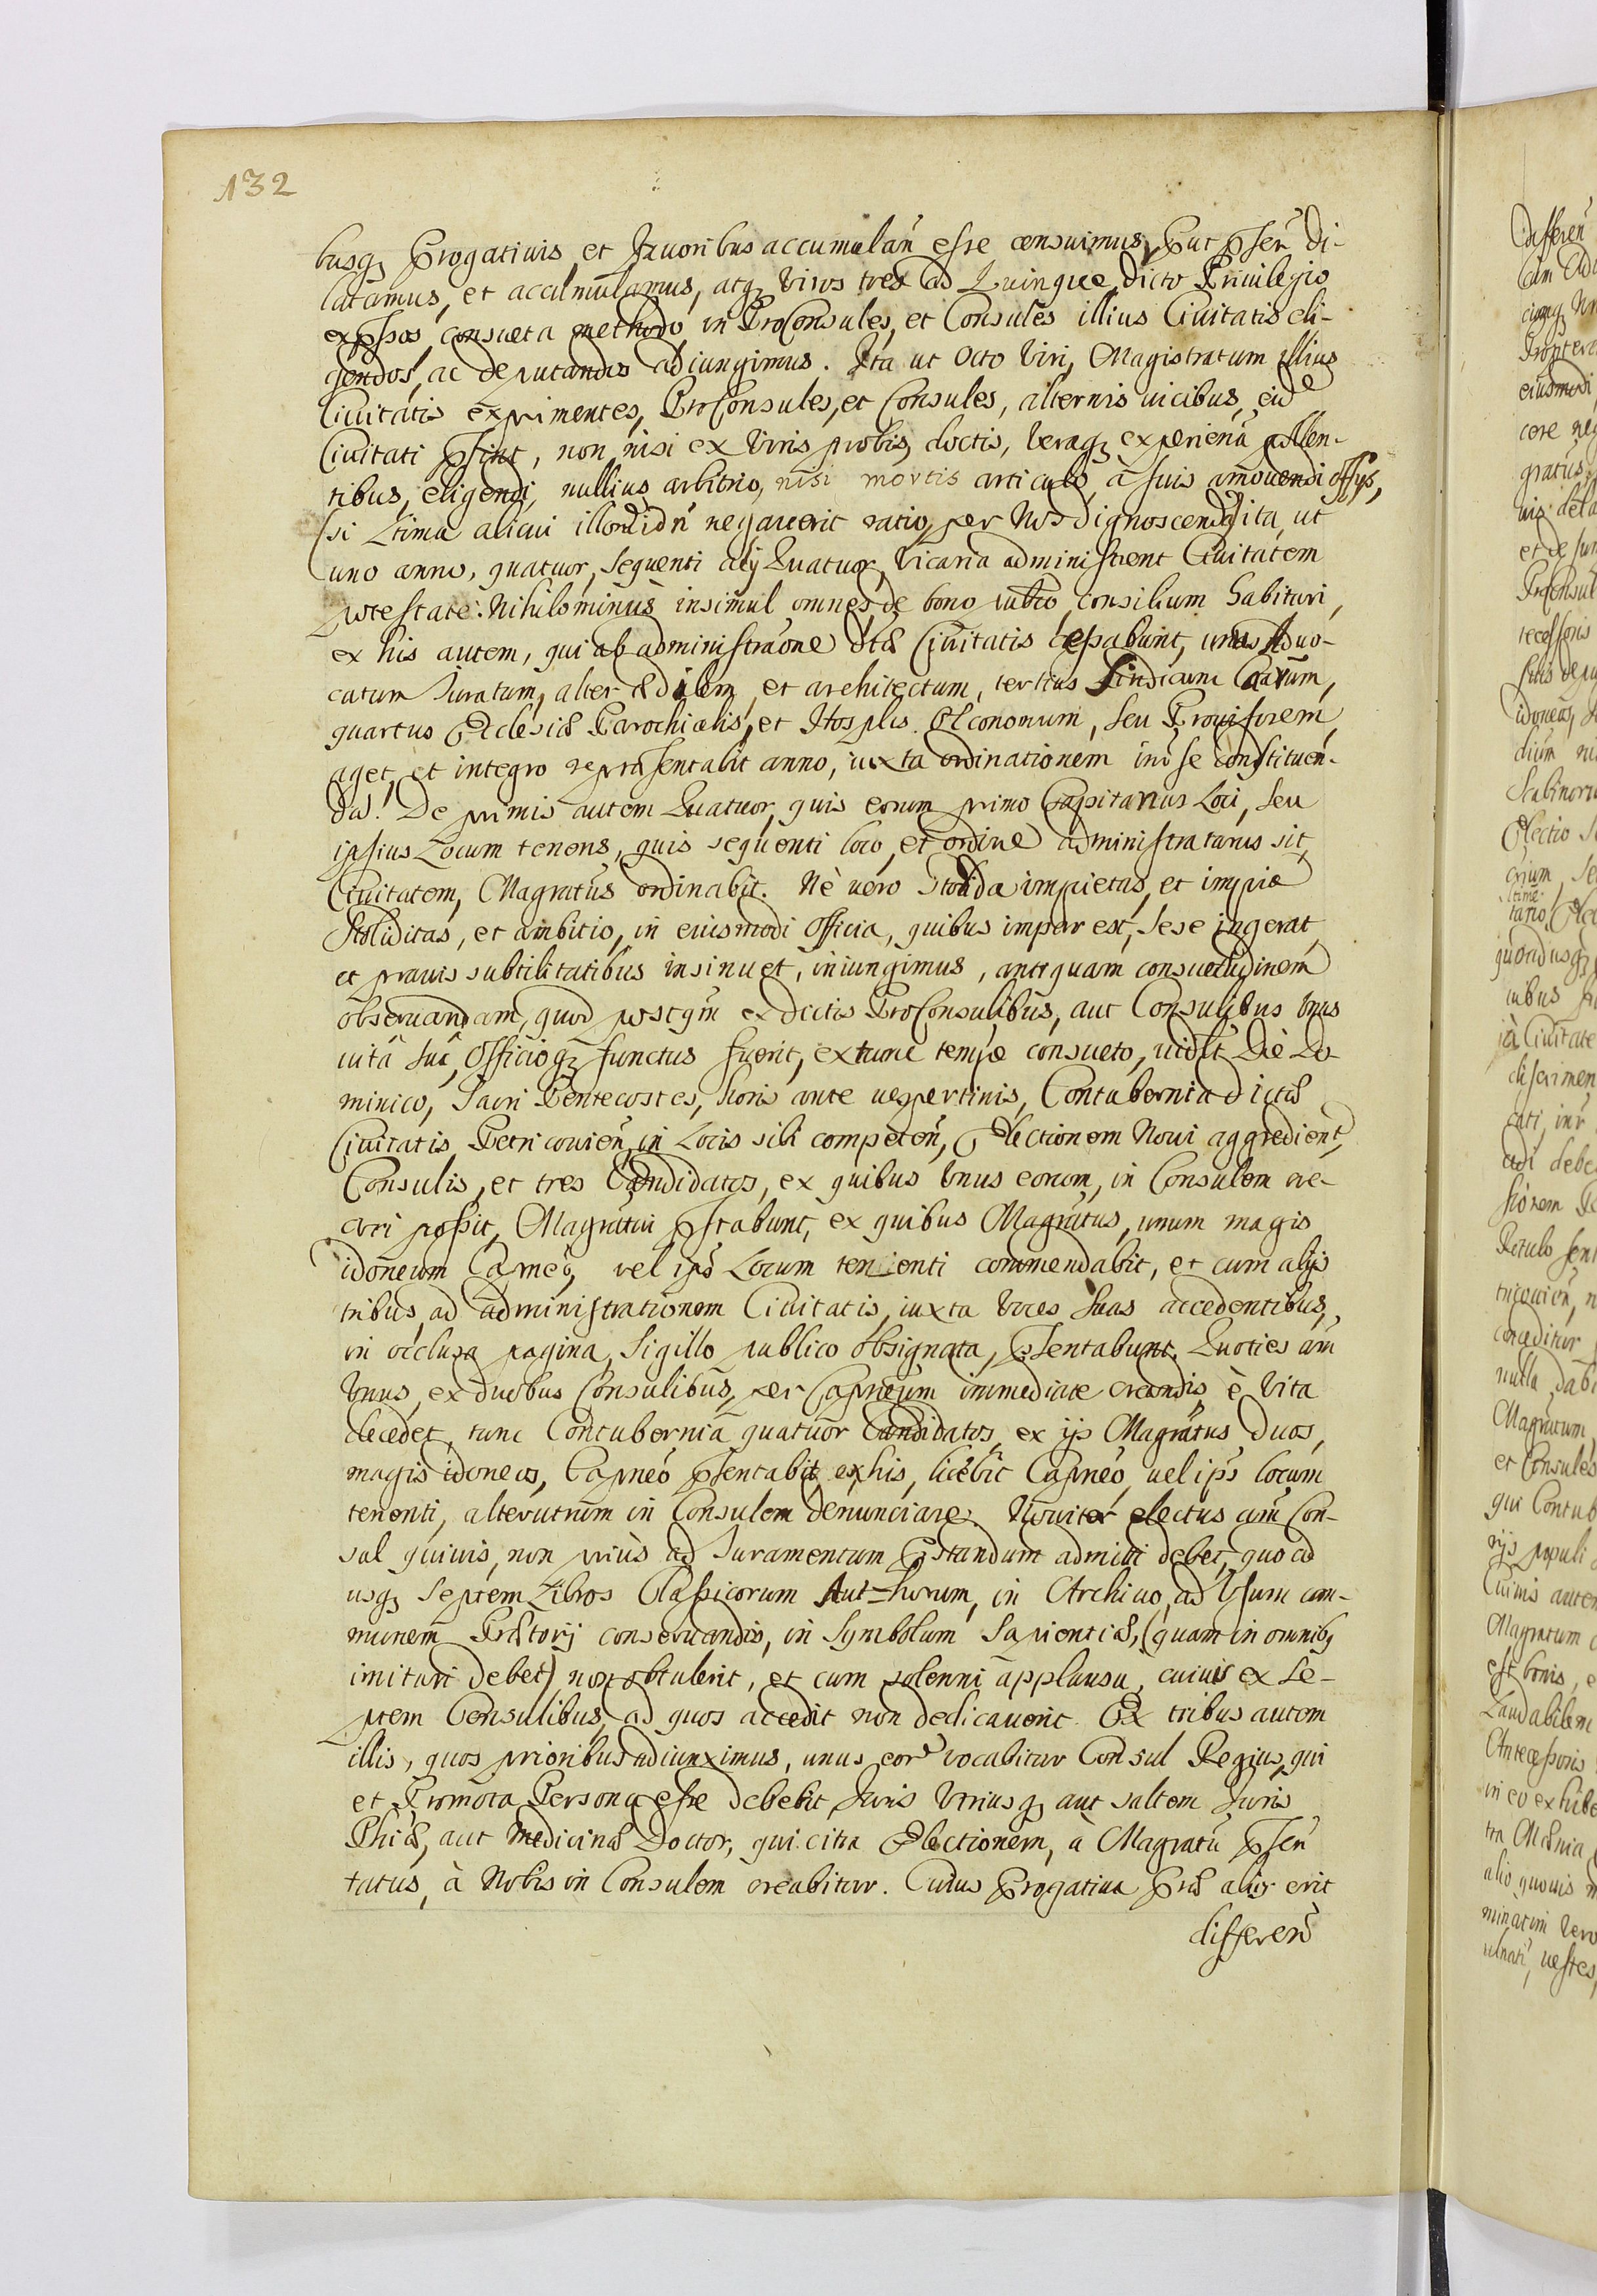 132
busq3 Prõgatiuis et Fauoribus accumulañ esse censuimus, Put Psẽn di-
latamus, et accumulamus, atq3 Viros tres ad Quinque dicto Priuilegio
exp̃ssos, consueta methodo in ProConsules, et Consules illius Ciuitatis eli-
gendos, ac deputandos adiungimus. Ita ut Octo Viri, Magistratum illius
Ciuitatis exprimentes, ProConsules, et Consules, alternis uicibus, eidẽ
Ciuitati p̃sint, non nisi ex Viris probis, doctis, Veraq3 experienã pollen-
tibus, eligendi, nullius arbitrio, nisi mortis articulo, à suis amouendi offijs,
(si Ltima alicui illor id ñ negauerit ratio, per Nos dignoscenda) ita, ut
uno anno, quatuor, sequenti alij Quatuor, Vicaria administrent Ciuitatem
potestate. Nihilominùs insimul omnes, de bono publico consilium habituri,
ex his autem, qui ab administraõne dtæ Ciuitatis cessabunt, unus Aduo-
catum Juratum, alter Ædilem, et architectum, tertius Sindicum Caũm,
quartus Ecclesiæ Parochialis, et Hosplis Œconomum, seu Prouisorem,
aget, et integro repræsentabit anno, iuxta ordinationem inr̃ se constituen-
da'. De primis autem Quatuor, quis eorum primo Capitanius Loci, seu
ipsius Locum tenens, quis sequenti loco, et ordine administraturus sit,
Ciuitatem, Magratus ordinabit. Nè uero Stolida impietas, et impia
Stoliditas, et ambitio, in eiusmodi Officia, quibus impar est, sese ingerat,
et prauis subtilitatibus insinuet, iniungimus, antiquam consuetudinem
obseruandam, quod postqm̃ ex dictis ProConsulibus, aut Consulibus Vnus
uitâ suâ, Officioq3 functus fuerit, ex tunc tempe consueto, uidlt Die Do-
minico, Sacri Pentecostes, horis ante uespertinis, Contubernia dictæ
Ciuitatis Petricouien̄, in Locis sibi competen̄, Electionem Noui aggredient̄,
Consulis, et tres Candidatos, ex quibus Vnus eorum, in Consulem cre-
ari possit, Magratui Pstabunt, ex quibus Magratus, unum magis
idoneum Capneo, vel ips̃ Locum tenenti commendabit, et cum alijs
tribus, ad administrationem Ciuitatis, iuxta Vices suas accedentibus,
in occlusa pagina, Sigillo publico obsignata, Psentabunt. Quoties aũm
Vnus, ex duobus Consulibus, per Capneum immediate creandis, è Vita
decedet, tunc Contubernia quatuor Candidatos, ex ijs Magratus duos,
magis idoneos, Capneo Psentabit, ex his, licebit Capneo, uel ips̃ locum
tenenti, alterutrum in Consulem denunciare. Nouiter electus aũm Con-
sul quiuis, non priùs ad Juramentum Pstandum admitti debet, quo ad
usq3 Septem Libros Classicorum Aut=horum, in Archiuo, ad Vsum com-
munem Prætorij conseruandos, in Symbolum Sapientiæ, (quam in omnib3
imitari debet) non obtulerit, et cum solenni applausu, cuiuis ex Se-
ptem Consulibus, ad quos accedit non dedicauerit. Ex tribus autem
illis, quos prioribus adiunximus, unus eor vocabitur Consul Regius, qui
et Promota Persona esse debebit Juris Vtriusq3 aut saltem Juris
Phiæ, aut Medicinæ Doctor, qui citra Electionem, à Magratu Psen̄
tatus, à Nobis in Consulem creabitur. Cuius Prõgatiua Præ alijs erit
differen̄